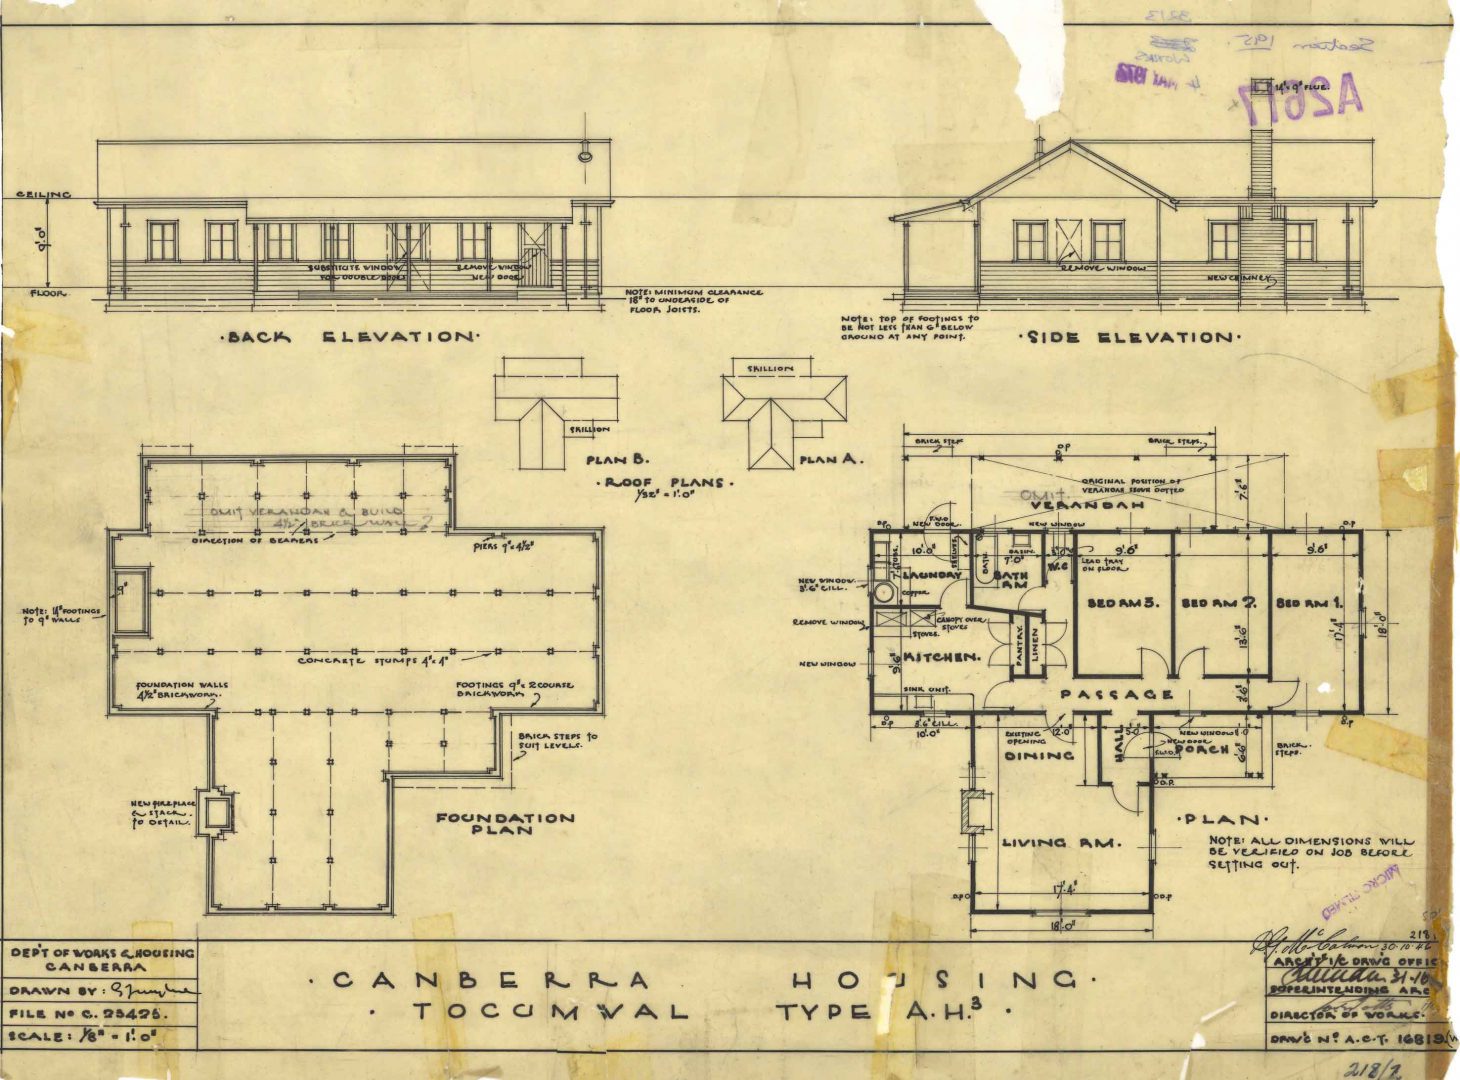 3213
Section 195.
WORKS
4 MAY 1972
A2617
14"x 9" FLUE.
CEILING
9'.0"
FLOOR
SUBSTITUTE WINDOW
FOR DOUBLE DOOR
REMOVE WINDOW
NEW DOOR
NOTE: MINIMUM CLEARANCE
18" TO UNDERSIDE OF
FLOOR JOISTS.
·BACK ELEVATION·
REMOVE WINDOW
NEW CHIMNEY
NOTE: TOP OF FOOTINGS TO
BE NOT LESS THAN 6" BELOW
GROUND AT ANY POINT.
·SIDE ELEVATION·
SKILLION
PLAN B.
SKILLION
PLAN A.
·ROOF PLANS·
1/32" = 1'.0"
OMIT VERANDAH & BUILD
4½" BRICK WALL
DIRECTION OF BEARERS
PIERS 9" x 4½"
9"
NOTE: 14" FOOTINGS
TO 9" WALLS
CONCRETE STUMPS 4"x 4"
FOUNDATION WALLS
4½" BRICKWORK.
FOOTINGS 9" x 2 COURSE
BRICKWORK
BRICK STEPS TO
SUIT LEVELS.
NEW FIREPLACE
& STACK
TO DETAIL.
FOUNDATION
PLAN
BRICK STEPS
D.P
BRICK STEPS.
ORIGINAL POSITION OF
VERANDAH SHOWN DOTTED
OMIT
VERANDAH
7'.6"
D.P
NEW DOOR.
NEW WINDOW
D.P
10'.0"
TUBS.
7'.6"
LAUNDRY
COPPER
BATH
BASIN.
7'.0"
BATH
RM
3'.0"
W.C
LEAD TRAY
ON FLOOR
9'.6"
9'.6"
NEW WINDOW.
3'.6" CILL.
BED RM 3.
BED RM 2.
BED RM 1.
REMOVE WINDOW
CANOPY OVER
STOVES
STOVES.
13'.6"
17'.4"
18'.0"
KITCHEN.
PANTRY.
LINEN
NEW WINDOW
9'.6"
SINK UNIT.
PASSAGE
3'.6"
D.P
3'.6" CILL.
10'.0"
EXISTING
OPENING
12'.0"
5'.0"
NEW WINDOW
8'.0"
D.P
DINING
HALL
NEW DOOR
PORCH
6'.6"
BRICK
STEPS.
D.P.
LIVING RM.
·PLAN·
NOTE: ALL DIMENSIONS WILL
BE VERIFIED ON JOB BEFORE
SETTING OUT.
MICROFILMED
D.P
17'.4"
D.P
18'.0"
DEP'T OF WORKS & HOUSING
CANBERRA
DRAWN BY:
FILE No C. 25425.
SCALE: 1/8" = 1'.0"
·CANBERRA HOUSING·
·TOCUMWAL TYPE A.H.³·
30·10·46
ARCH'T I/C DRWG OFFIC
31·10
SUPERINTENDING ARC
DIRECTOR OF WORKS.
DRWG No. A.C.T. 16819
218/2